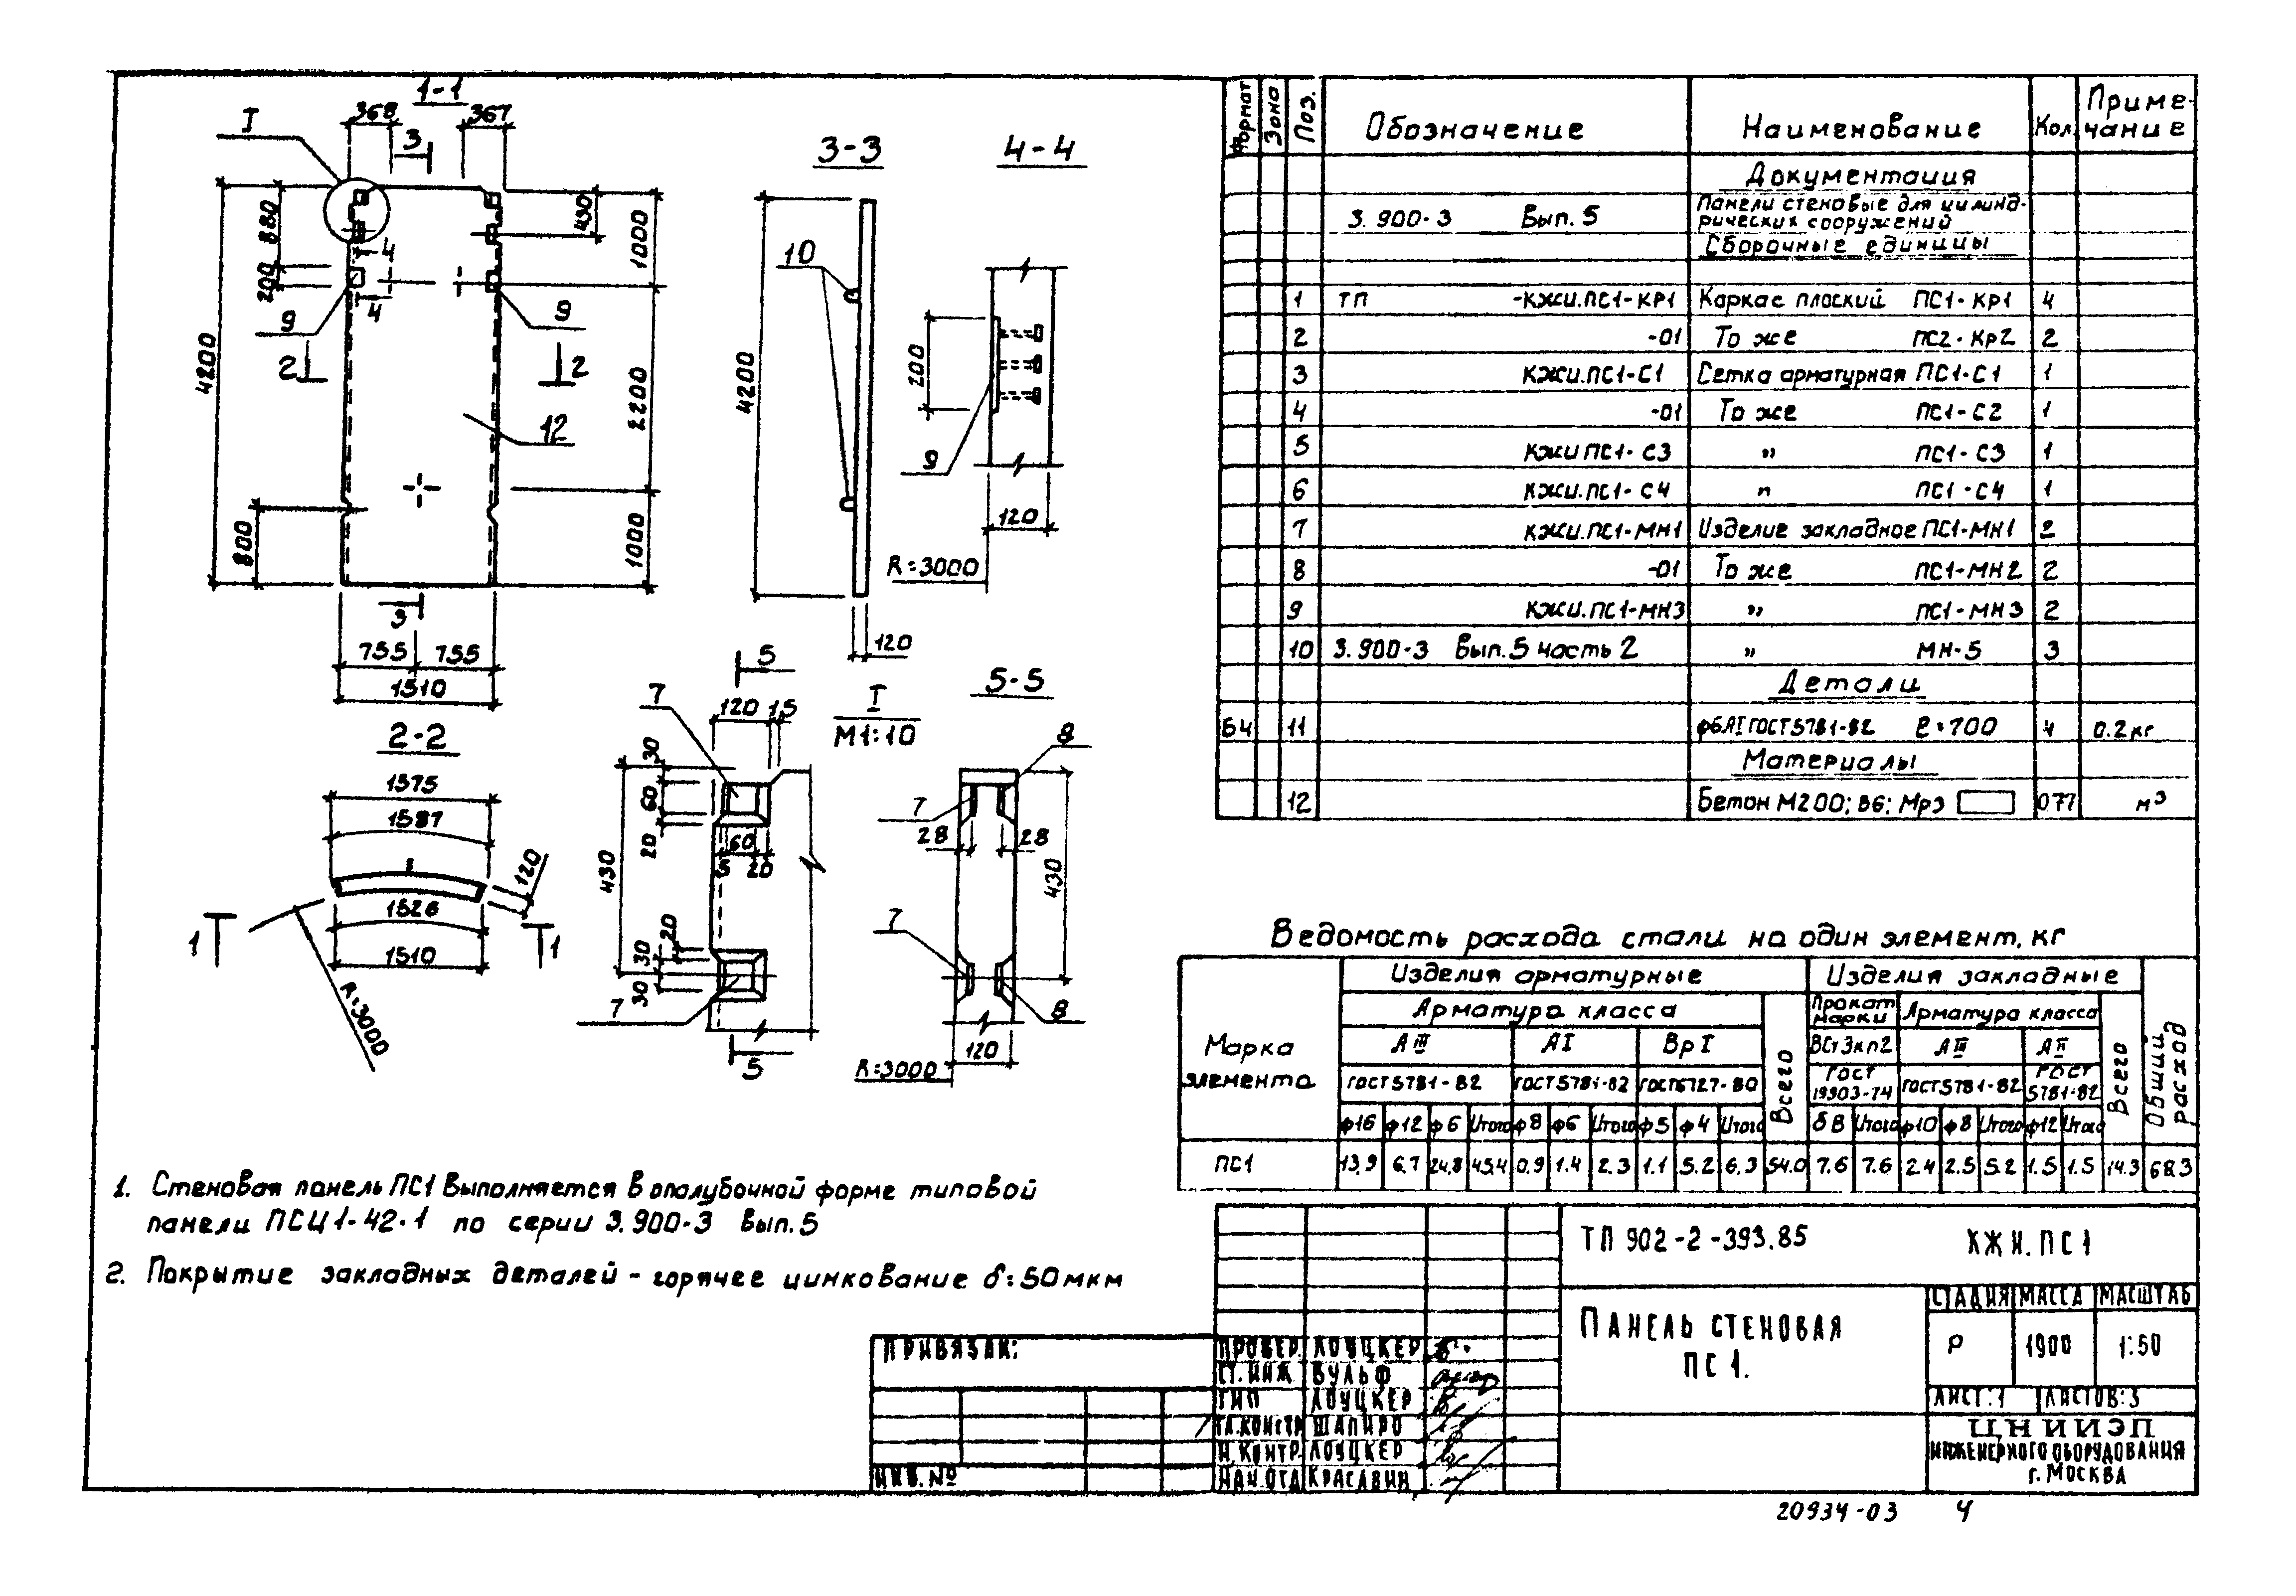 1-1
I
368
367
3
4200
880
200
430
1000
4
4
9
9
2
2
2200
12
800
1000
3
755
755
1510
3-3
4200
10
120
4-4
200
9
120
R=3000
2-2
1575
1587
120
1526
1510
1
1
R=3000
5
7
120
15
I
М1:10
30
60
20
430
5
60
20
20
30
30
7
5
5-5
8
7
28
28
430
7
8
120
R=3000
Формат
Зона
Поз.
Обозначение
Наименование
Кол.
Приме-
чание
Документация
3.900-3 Вып. 5 Панели стеновые для цилинд-
рических сооружений
Сборочные единицы
1 ТП -КЖИ.ПС1-КР1 Каркас плоский ПС1-КР1 4
2 -01 То же ПС2-КР2 2
3 КЖИ.ПС1-С1 Сетка арматурная ПС1-С1 1
4 -01 То же ПС1-С2 1
5 КЖИ ПС1-С3 " ПС1-С3 1
6 КЖИ.ПС1-С4 " ПС1-С4 1
7 КЖИ.ПС1-МН1 Изделие закладное ПС1-МН1 2
8 -01 То же ПС1-МН2 2
9 КЖИ.ПС1-МН3 " ПС1-МН3 2
10 3.900-3 Вып. 5 часть 2 " МН-5 3
Детали
БЧ 11 ф6АI ГОСТ 5781-82 ℓ=700 4 0.2кг
Материалы
12 Бетон М200; В6; Мрз 0.77 м³
Ведомость расхода стали на один элемент, кг
Марка
элемента
Изделия арматурные
Изделия закладные
Общий расход
Арматура класса
Всего
Прокат
марки
Арматура класса
Всего
АIII АI ВрI ВСт3кп2 АIII АII
ГОСТ 5781-82 ГОСТ 5781-82 ГОСТ 6727-80 ГОСТ
19903-74 ГОСТ 5781-82 ГОСТ
5781-82
ф16 ф12 ф6 Итого ф8 ф6 Итого ф5 ф4 Итого δ8 Итого ф10 ф8 Итого ф12 Итого
ПС1 13,9 6,7 24,8 45,4 0,9 1.4 2.3 1.1 5.2 6.3 54.0 7.6 7.6 2.4 2.5 5.2 1.5 1.5 14.3 68.3
1. Стеновая панель ПС1 выполняется в опалубочной форме типовой
панели ПСЦ1-42-1 по серии 3.900-3 Вып. 5
2. Покрытие закладных деталей - горячее цинкование δ=50мкм
ТП 902-2-393.85 КЖИ.ПС1
Панель стеновая
ПС1.
СТАДИЯ МАССА МАСШТАБ
Р 1900 1:50
ЛИСТ:1 ЛИСТОВ:3
ЦНИИЭП
ИНЖЕНЕРНОГО ОБОРУДОВАНИЯ
г. МОСКВА
ПРИВЯЗАН:
ИНВ.№
ПРОВЕР. ЛОУЦКЕР
СТ.ИНЖ. ВУЛЬФ
ГИП ЛОУЦКЕР
ГЛ.КОНСТР. ШАПИРО
Н.КОНТР. ЛОУЦКЕР
НАЧ.ОТД. КРАСАВИН
20934-03 4